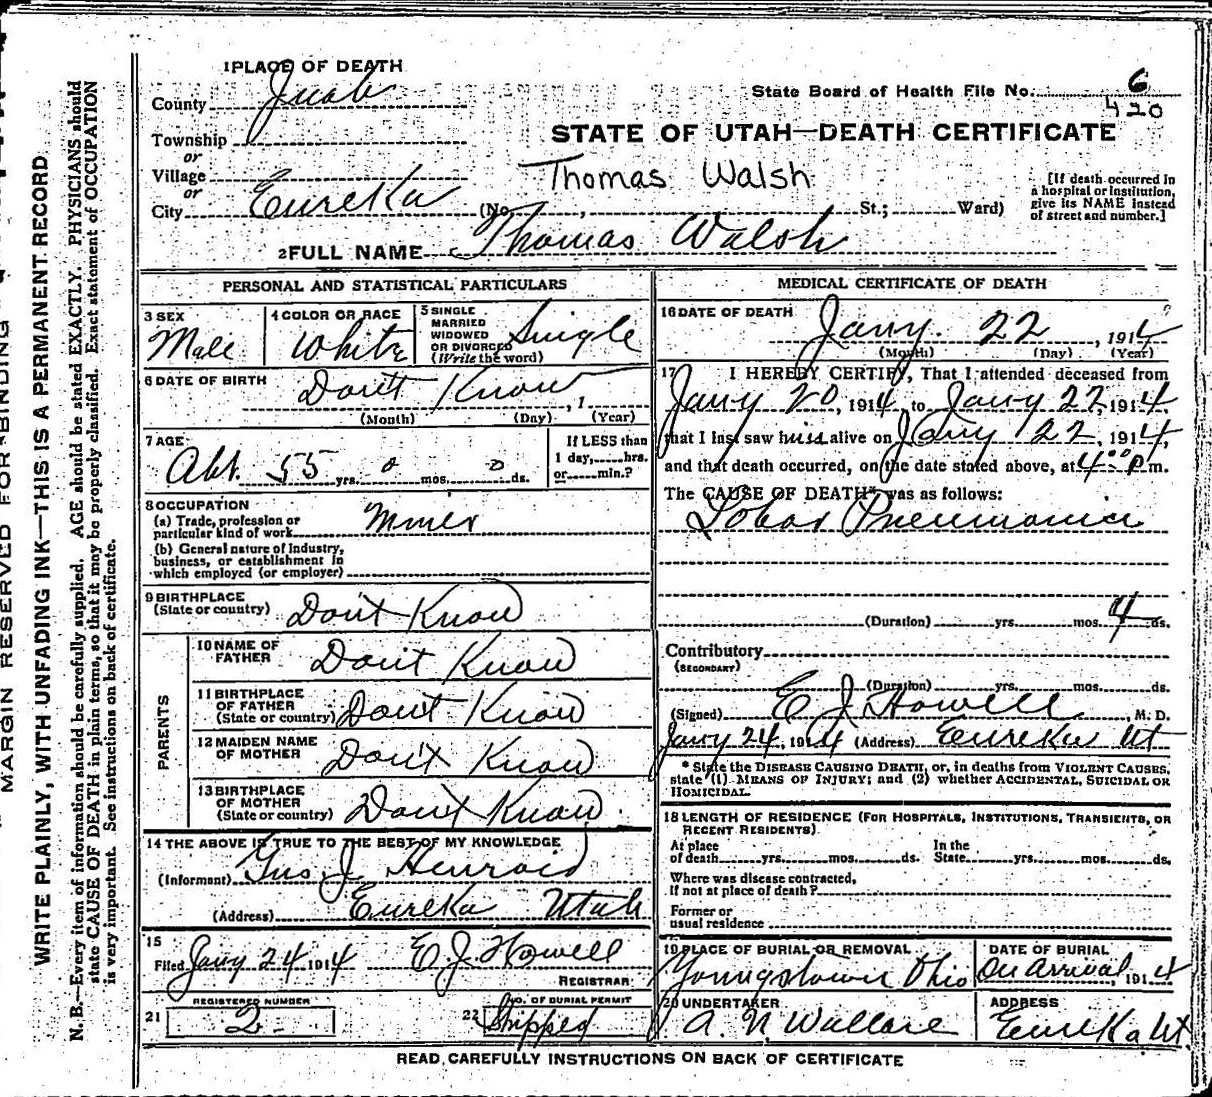 1 PLACE OF DEATH
County Juab
State Board of Health File No. 6
420
Township
or
Village
or
City Eureka
STATE OF UTAH—DEATH CERTIFICATE
Thomas Walsh
(No. , St.; Ward)
[If death occurred in
a hospital or institution,
give its NAME instead
of street and number.]
2 FULL NAME Thomas Walsh
PERSONAL AND STATISTICAL PARTICULARS
3 SEX
Male
4 COLOR OR RACE
White
5 SINGLE
MARRIED
WIDOWED
OR DIVORCED
(Write the word)
Single
6 DATE OF BIRTH
Don't Know , 1
(Month) (Day) (Year)
7 AGE
Abt. 55 yrs. 0 mos. 0 ds.
If LESS than
1 day, hrs.
or min.?
8 OCCUPATION
(a) Trade, profession or
particular kind of work Miner
(b) General nature of industry,
business, or establishment in
which employed (or employer)
9 BIRTHPLACE
(State or country) Don't Know
PARENTS
10 NAME OF
FATHER Don't Know
11 BIRTHPLACE
OF FATHER
(State or country) Don't Know
12 MAIDEN NAME
OF MOTHER Don't Know
13 BIRTHPLACE
OF MOTHER
(State or country) Don't Know
14 THE ABOVE IS TRUE TO THE BEST OF MY KNOWLEDGE
(Informant) Gus. J. Henroid
(Address) Eureka Utah
15
Filed Jany 24 1914 E J Howell
REGISTRAR
REGISTERED NUMBER
21 2
NO. OF BURIAL PERMIT
22 Shipped
MEDICAL CERTIFICATE OF DEATH
16 DATE OF DEATH
Jany. 22 , 1914
(Month) (Day) (Year)
17 I HEREBY CERTIFY, That I attended deceased from
Jany 20, 1914, to Jany 22, 1914,
that I last saw him alive on Jany 22, 1914,
and that death occurred, on the date stated above, at 4:00 P.m.
The CAUSE OF DEATH* was as follows:
Lobar Pneumonia
(Duration) yrs. mos. 4 ds.
Contributory
(SECONDARY)
(Duration) yrs. mos. ds.
(Signed) E J Howell M. D.
Jany 24, 1914 (Address) Eureka Ut
* State the DISEASE CAUSING DEATH, or, in deaths from VIOLENT CAUSES,
state (1) MEANS OF INJURY; and (2) whether ACCIDENTAL, SUICIDAL OR
HOMICIDAL.
18 LENGTH OF RESIDENCE (FOR HOSPITALS, INSTITUTIONS, TRANSIENTS, OR
RECENT RESIDENTS)
At place
of death yrs. mos. ds.
In the
State yrs. mos. ds.
Where was disease contracted,
if not at place of death?
Former or
usual residence
19 PLACE OF BURIAL OR REMOVAL
Youngstown Ohio
DATE OF BURIAL
On Arrival, 1914
20 UNDERTAKER
A. N. Wallace
ADDRESS
Eureka Ut.
READ CAREFULLY INSTRUCTIONS ON BACK OF CERTIFICATE
MARGIN RESERVED FOR BINDING
WRITE PLAINLY, WITH UNFADING INK—THIS IS A PERMANENT RECORD
N. B.—Every item of information should be carefully supplied. AGE should be stated EXACTLY. PHYSICIANS should
state CAUSE OF DEATH in plain terms, so that it may be properly classified. Exact statement of OCCUPATION
is very important. See instructions on back of certificate.